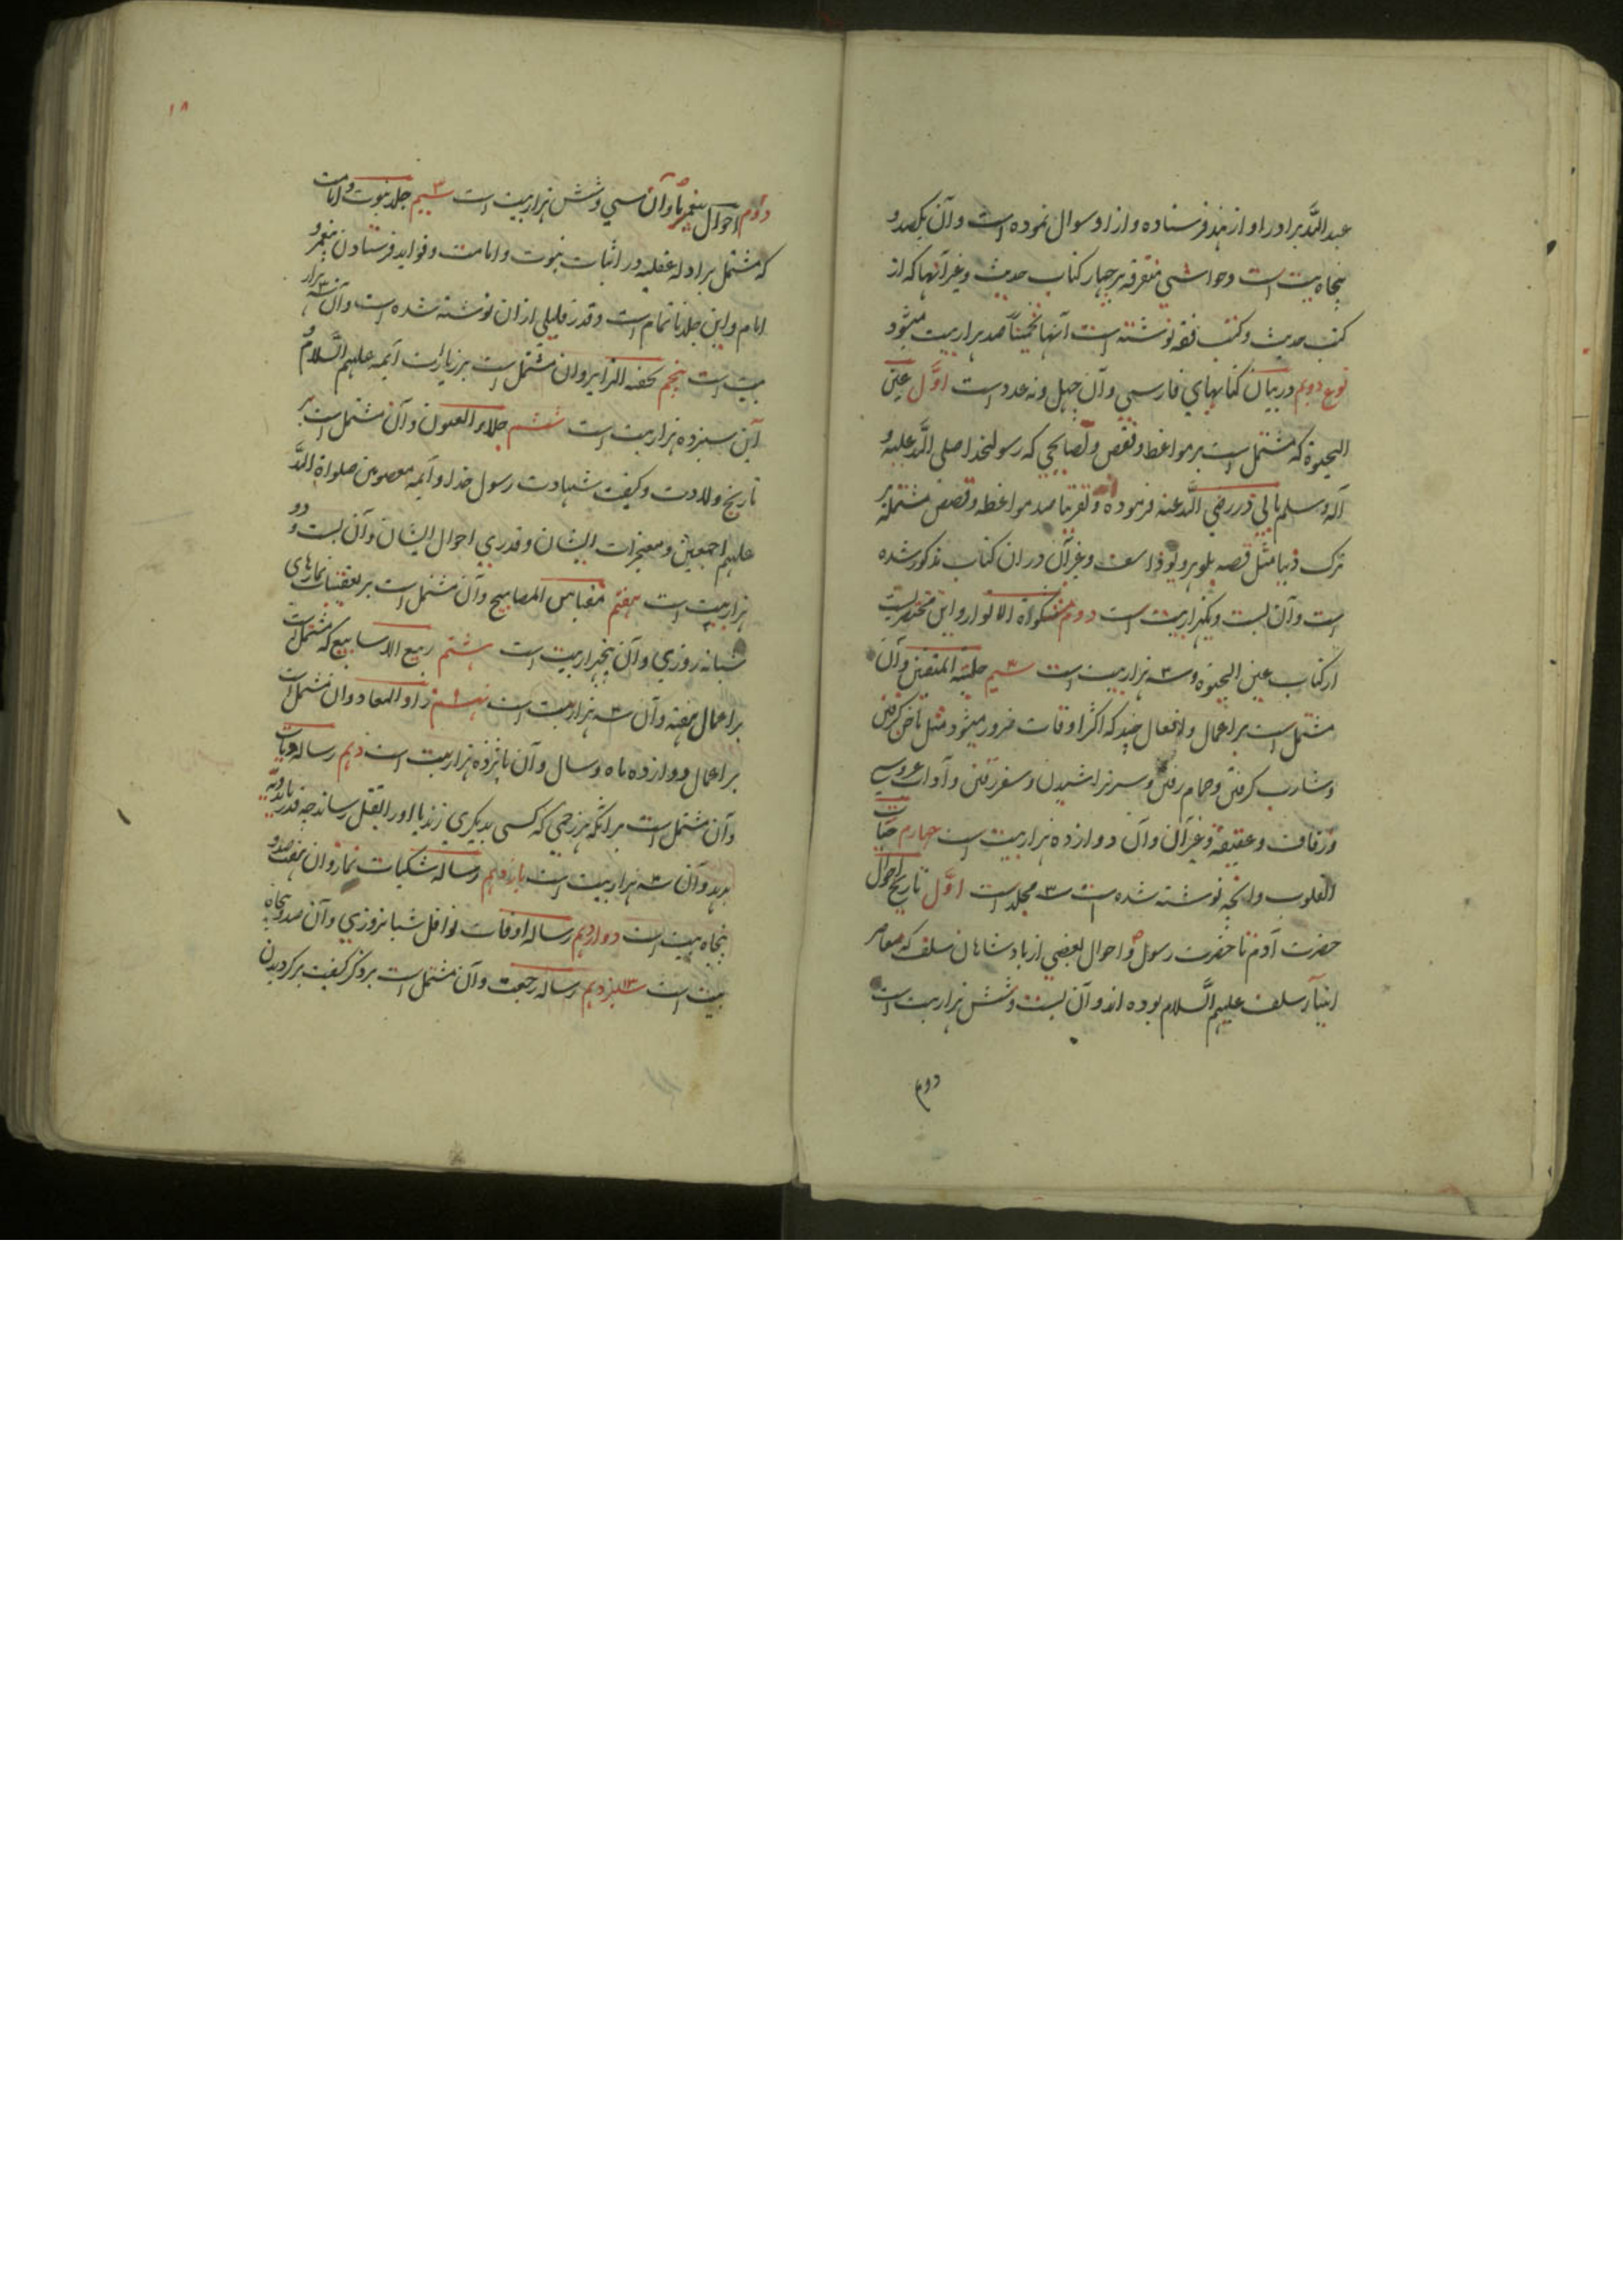 عبد الله برادر او از هند فرستاده و از او سوال نموده است و آن یکصد و
پنجاه بیت است و حواشی متفرقه بر چهار کتاب حدیث و غیر آنها که از
کتب حدیث و کتب فقه نوشته است آنها تخمیناً صد هزار بیت میشود
نوع دویم در بیان کتابهای فارسی و آن چهل و نه عدد است اوّل عین
الحیوة که مشتمل است بر مواعظ و قصص و نصایحی که رسول خدا صلی الله علیه و
آله و سلم بابی ذر رضی الله عنه فرموده و تقریبا صد مواعظ و قصص مشتمله بر
ترک دنیا مثل قصه بلوهر و یوذاسف و غیر آن در ان کتاب مذکور شده
است و آن بیست و یکهزار بیت است دوم مشکواة الانوار و این مختصریست
از کتاب عین الحیوة و سه ۳ هزار بیت است سیم حلیة المتقین و آن
مشتمل است بر اعمال و افعال چند که اکثر اوقات ضرور میشود مثل ناخن گرفتن
و شارب گرفتن و حمام رفتن و سر تراشیدن و سفر رفتن و آداب عروسی
و زفاف و عقیقه و غیر آن و آن دوازده هزار بیت است چهارم حیات
القلوب و آنچه نوشته شده است ۳ مجلد است اوّل تاریخ احوال
حضرت آدم تا حضرت رسول ص و احوال بعضی از بادشاهان سلف که معاصر
انبیآء سلف علیهم السّلام بوده اند و آن بیست و شش هزار بیت است
دوم
۱۸
دوّم احوال پیغمبر ما و آن سی و شش هزار بیت است سیم ۳ جلد نبوت و امامت
که مشتمل بر ادله عقلیه در اثبات نبوت و امامت و فواید فرستادن پیغمبر و
امام و این جلد ناتمام است و قدر قلیلی از ان نوشته شده است و آن سه ۳ هزار
بیت است پنجم تحفه الزایر و ان مشتمل است بر زیارت آیمه علیهم السّلام و
آین سیزده هزار بیت است ششم جلاء العیون و آن مشتمل است بر
تاریخ ولادت و کیفیت شهادت رسول خدا و آیمه معصومین صلواة الله
علیهم اجمعین و معجزات ایشان و قدری احوال ایشان و آن بیست و دو
هزار بیت است هفتم مقیاس المصابیح و آن مشتمل است بر تعقیبات نمازهای
شبانه روزی و آن پنجهزار بیت است هشتم ربیع الاسابیع که مشتمل است
بر اعمال هفته و آن سه ۳ هزار بیت است نهم ۹ زاد المعاد و ان مشتمل است
بر اعمال دوازده ماه و سال و آن پانزده هزار بیت است دهم رساله دیات
و آن مشتمل است بر آنکه هر زخمی که کسی بدیگری زند یا او را بقتل رساند چه قدر باید دیه
بدهد و آن سه ۳ هزار بیت است یازدهم رساله شکیات نماز و ان هفتصد و
پنجاه بیت است دوازدهم رساله اوقات نوافل شبانروزی و آن صد و پنجاه
بیت است سیزدهم ۱۳ رساله رجعت و آن مشتمل است بر ذکر کیفیت برگردیدن